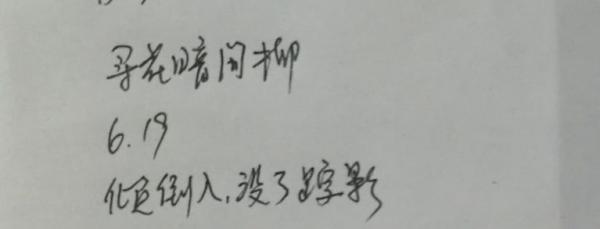 寻花暗问柳
6.19
倾倒入,没了踪影